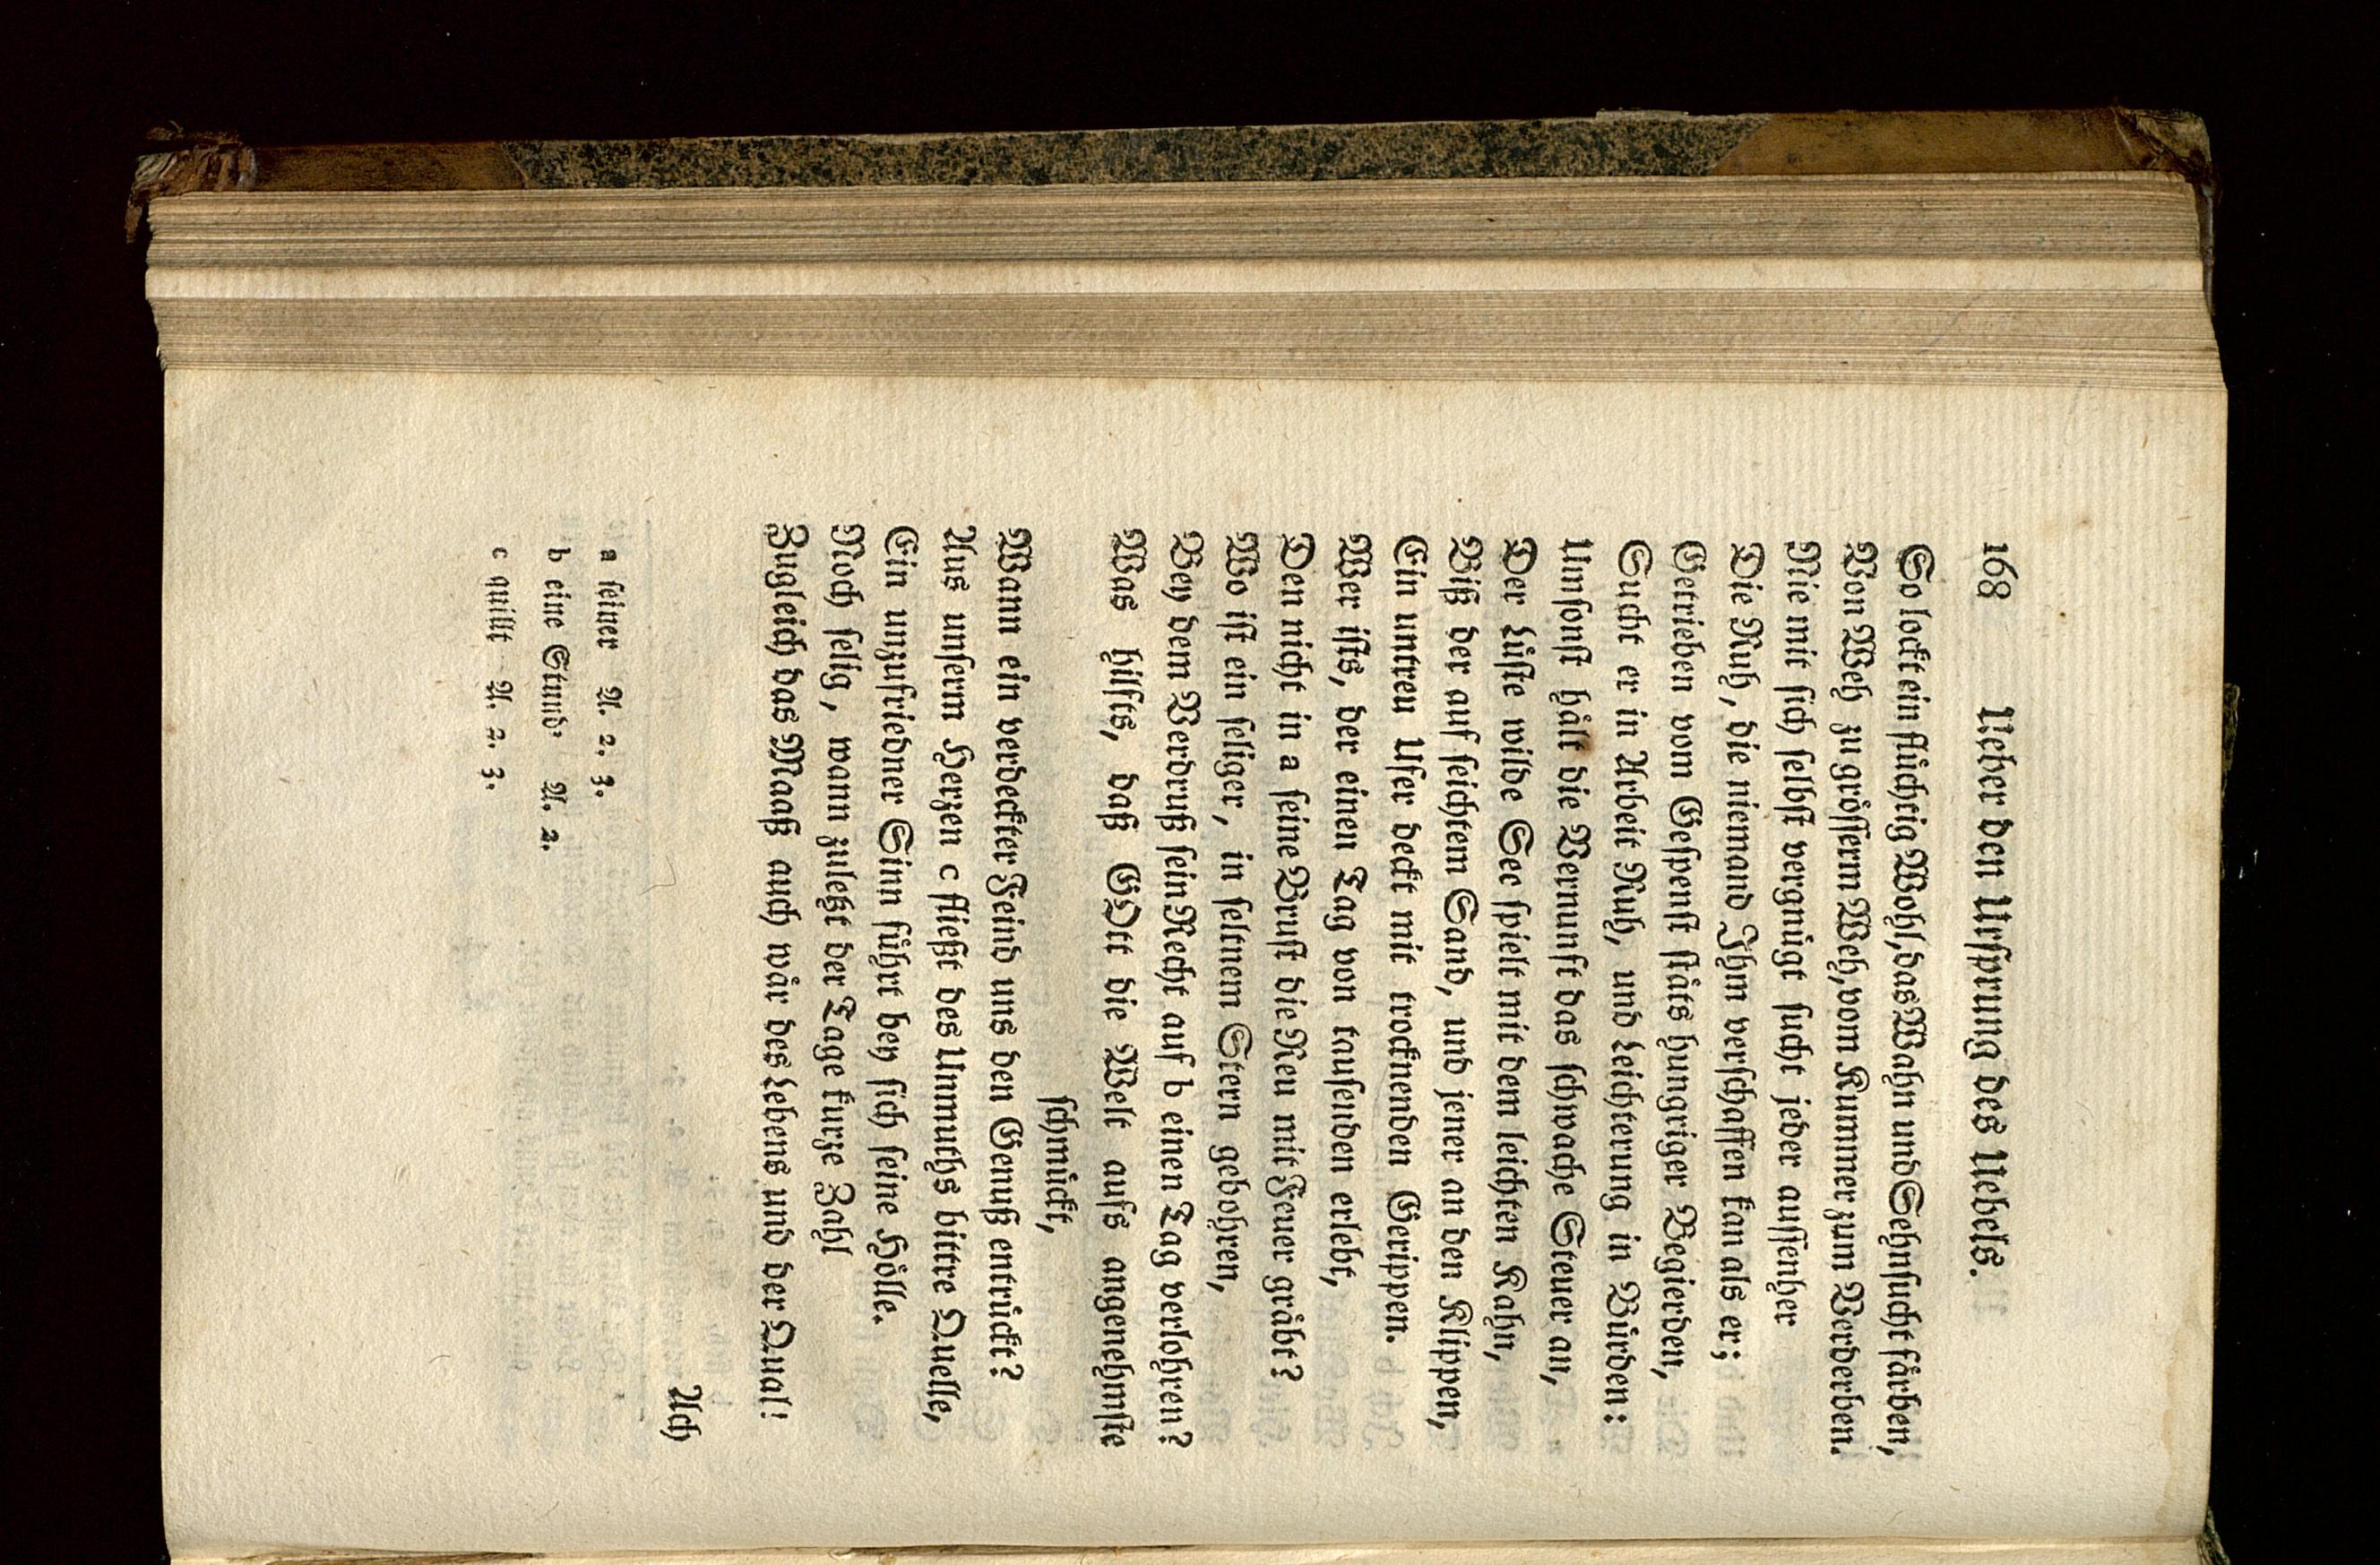 168 Ueber den Ursprung des Uebels.
So lockt ein flüchtig Wohl, das Wahn und Sehnsucht färben,
Von Weh zu grösserm Weh, vom Kummer zum Verderben.
Nie mit sich selbst vergnügt sucht jeder aussenher
Die Ruh, die niemand Ihm verschaffen kan als er;
Getrieben vom Gespenst stäts hungriger Begierden,
Sucht er in Arbeit Ruh, und Leichterung in Bürden:
Umsonst hält die Vernunft das schwache Steuer an,
Der Lüste wilde See spielt mit dem leichten Kahn,
Biß der auf seichtem Sand, und jener an den Klippen,
Ein untreu Ufer deckt mit trocknenden Gerippen.
Wer ists, der einen Tag von tausenden erlebt,
Den nicht in a seine Brust die Reu mit Feuer gräbt?
Wo ist ein seliger, in seltnem Stern gebohren,
Bey dem Verdruß sein Recht auf b einen Tag verlohren?
Was hilfts, daß GOtt die Welt aufs angenehmste
schmückt,
Wann ein verdeckter Feind uns den Genuß entrückt?
Aus unserm Herzen c fließt des Unmuths bittre Quelle,
Ein unzufriedner Sinn führt bey sich seine Hölle.
Noch selig, wann zuletzt der Tage kurze Zahl
Zugleich das Maaß auch wär des Lebens und der Qual!
Ach
a seiner A. 2. 3.
b eine Stund' A. 2.
c quillt A. 2. 3.